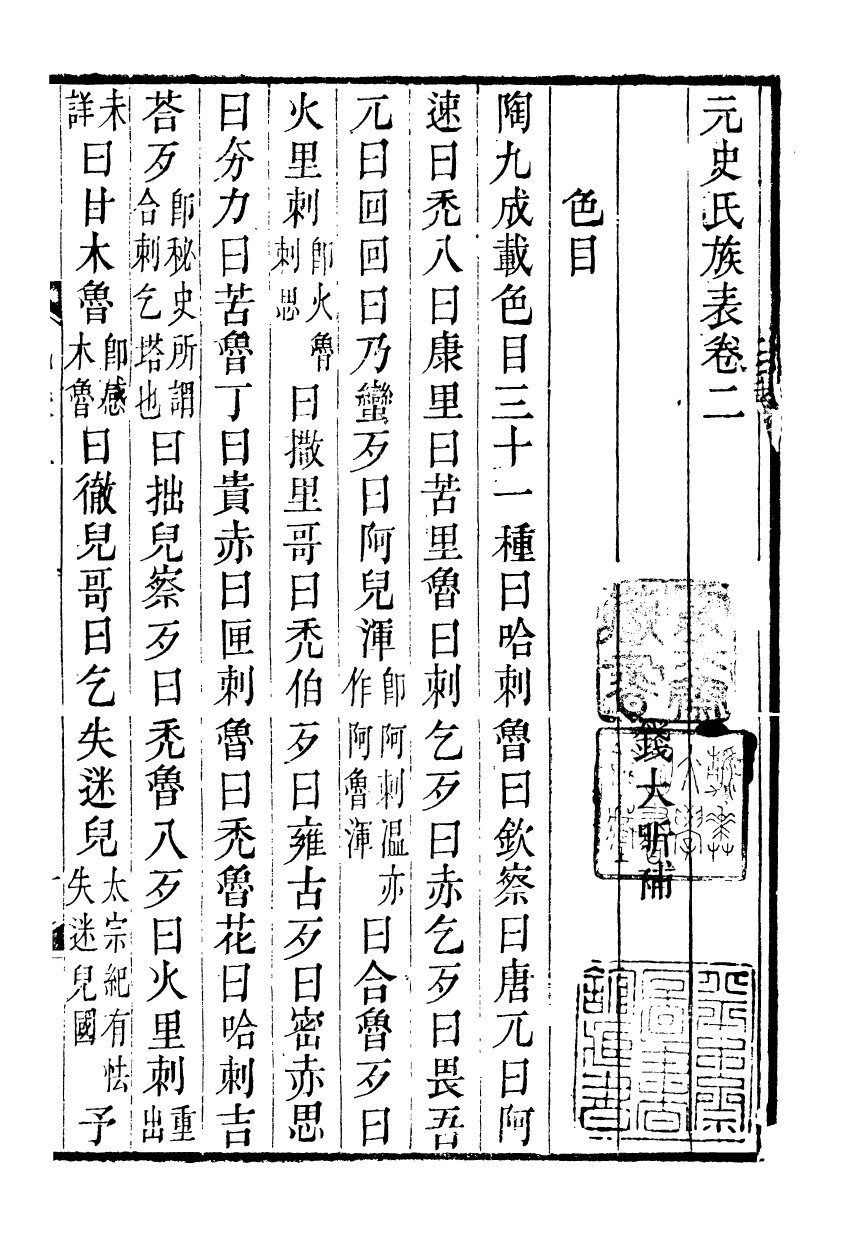 元史氏族表卷二
錢大昕補
色目
陶九成載色目三十一種曰哈刺魯曰欽察曰唐兀曰阿
速曰禿八曰康里曰苦里魯曰刺乞歹曰赤乞歹曰畏吾
兀曰回回曰乃蠻歹曰阿兒渾卽阿刺溫亦作阿魯渾曰合魯歹曰
火里刺卽火魯刺思曰撒里哥曰禿伯歹曰雍古歹曰密赤思
曰夯力曰苦魯丁曰貴赤曰匣刺魯曰禿魯花曰哈刺吉
荅歹卽秘史所謂合刺乞塔也曰拙兒察歹曰禿魯八歹曰火里刺重出
未詳曰甘木魯卽感木魯曰徹兒哥曰乞失迷兒太宗紀有怯失迷兒國予